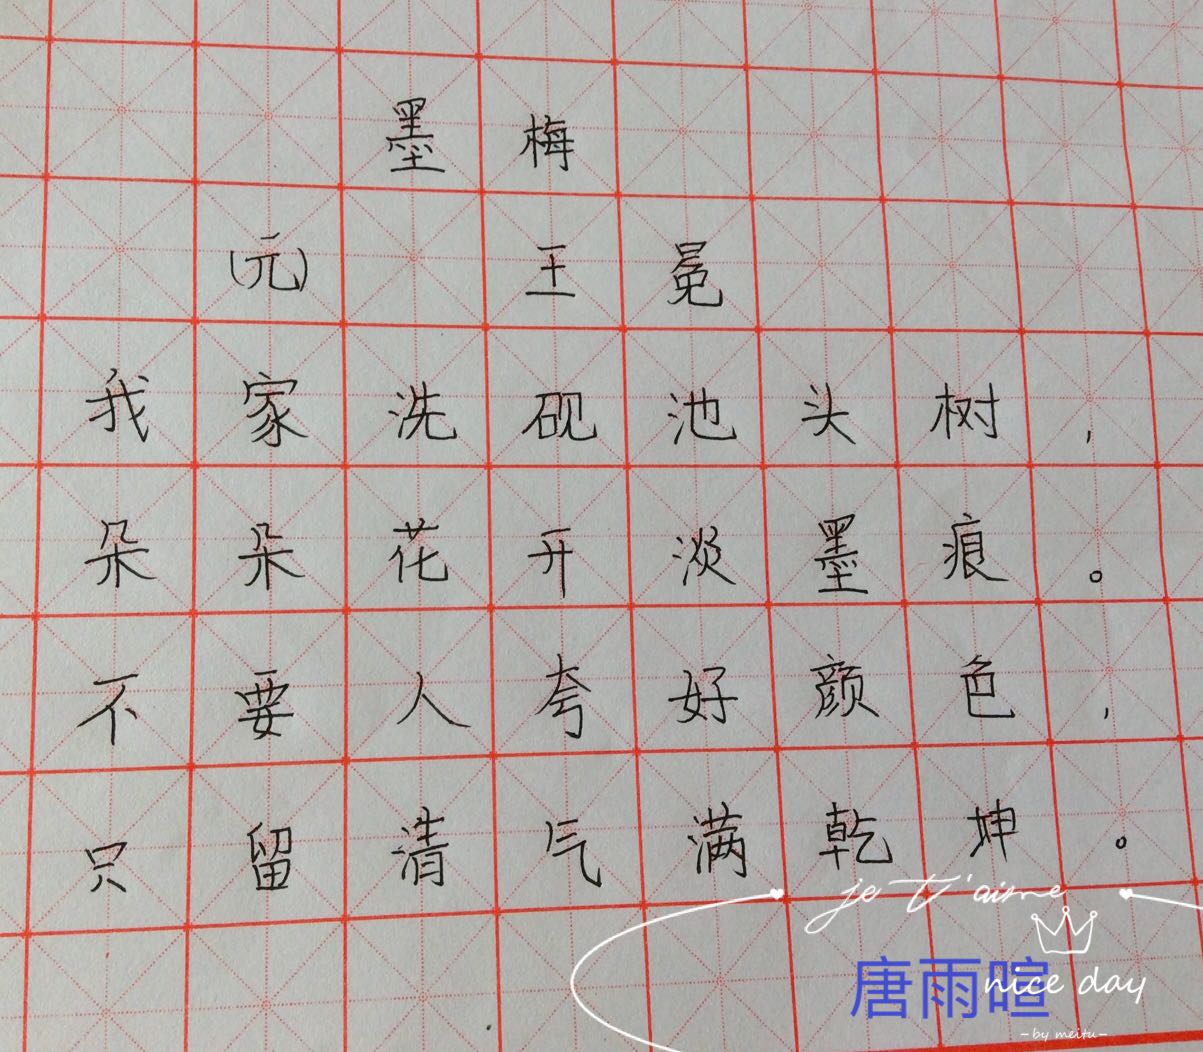 墨梅
(元) 王冕
我家洗砚池头树,
朵朵花开淡墨痕。
不要人夸好颜色,
只留清气满乾坤。
je t'aime
唐雨暄
nice day
-by meitu-